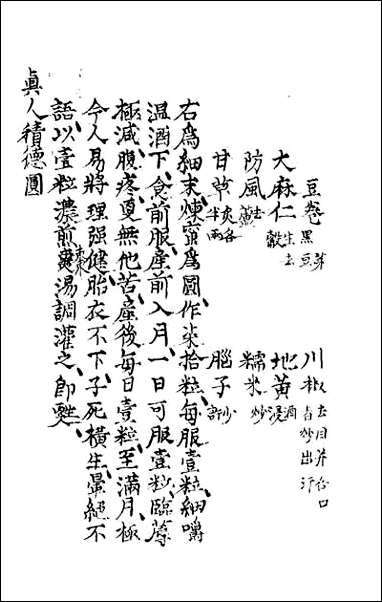 豆卷 黑豆芽 川椒 去目并合口者炒出汗
大麻仁 生去殼 地黃 酒浸
防風 去蘆 糯米 炒
甘草 炙各半兩 腦子 少許
右為細末煉蜜為圓作柒拾粒每服壹粒細嚼
温酒下食前服產前入月一日可服壹粒臨蓐
極減腹疼更無他苦產後每日壹粒至滿月極
令人易將理强健胎衣不下子死橫生暈絕不
語以壹粒濃煎棗湯調灌之即甦
眞人積德圓